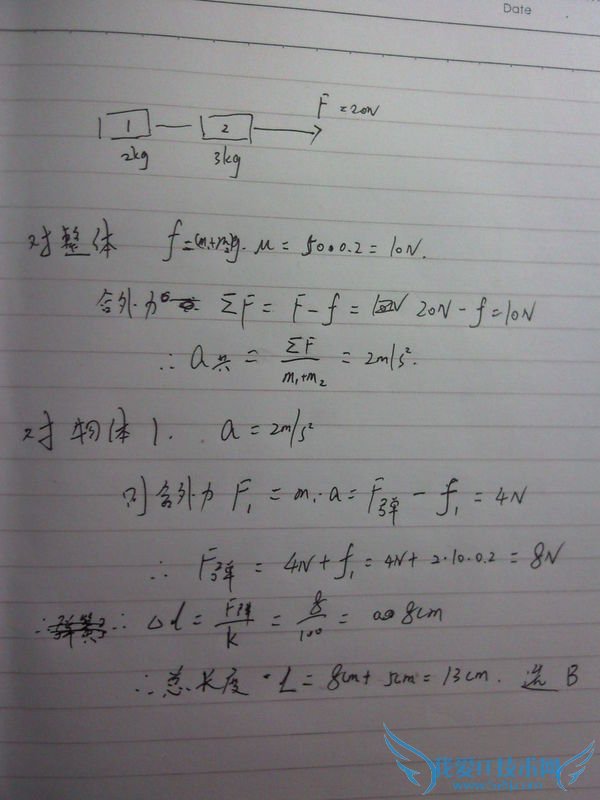 Date
F = 20N
1 2
2kg 3kg
对整体 f=(m₁+m₂)g·μ = 50·0.2 = 10N.
合外力 ΣF = F-f = 20N-f = 10N
∴ a共 = ΣF/(m₁+m₂) = 2m/s².
对物体1. a = 2m/s²
则合外力 F₁ = m₁·a = F弹 - f₁ = 4N
∴ F弹 = 4N + f₁ = 4N + 2·10·0.2 = 8N
∴ ∴ △l = F弹/k = 8/100 = 8cm
∴总长度·L = 8cm + 5cm = 13cm. 选 B
我爱IT技术网